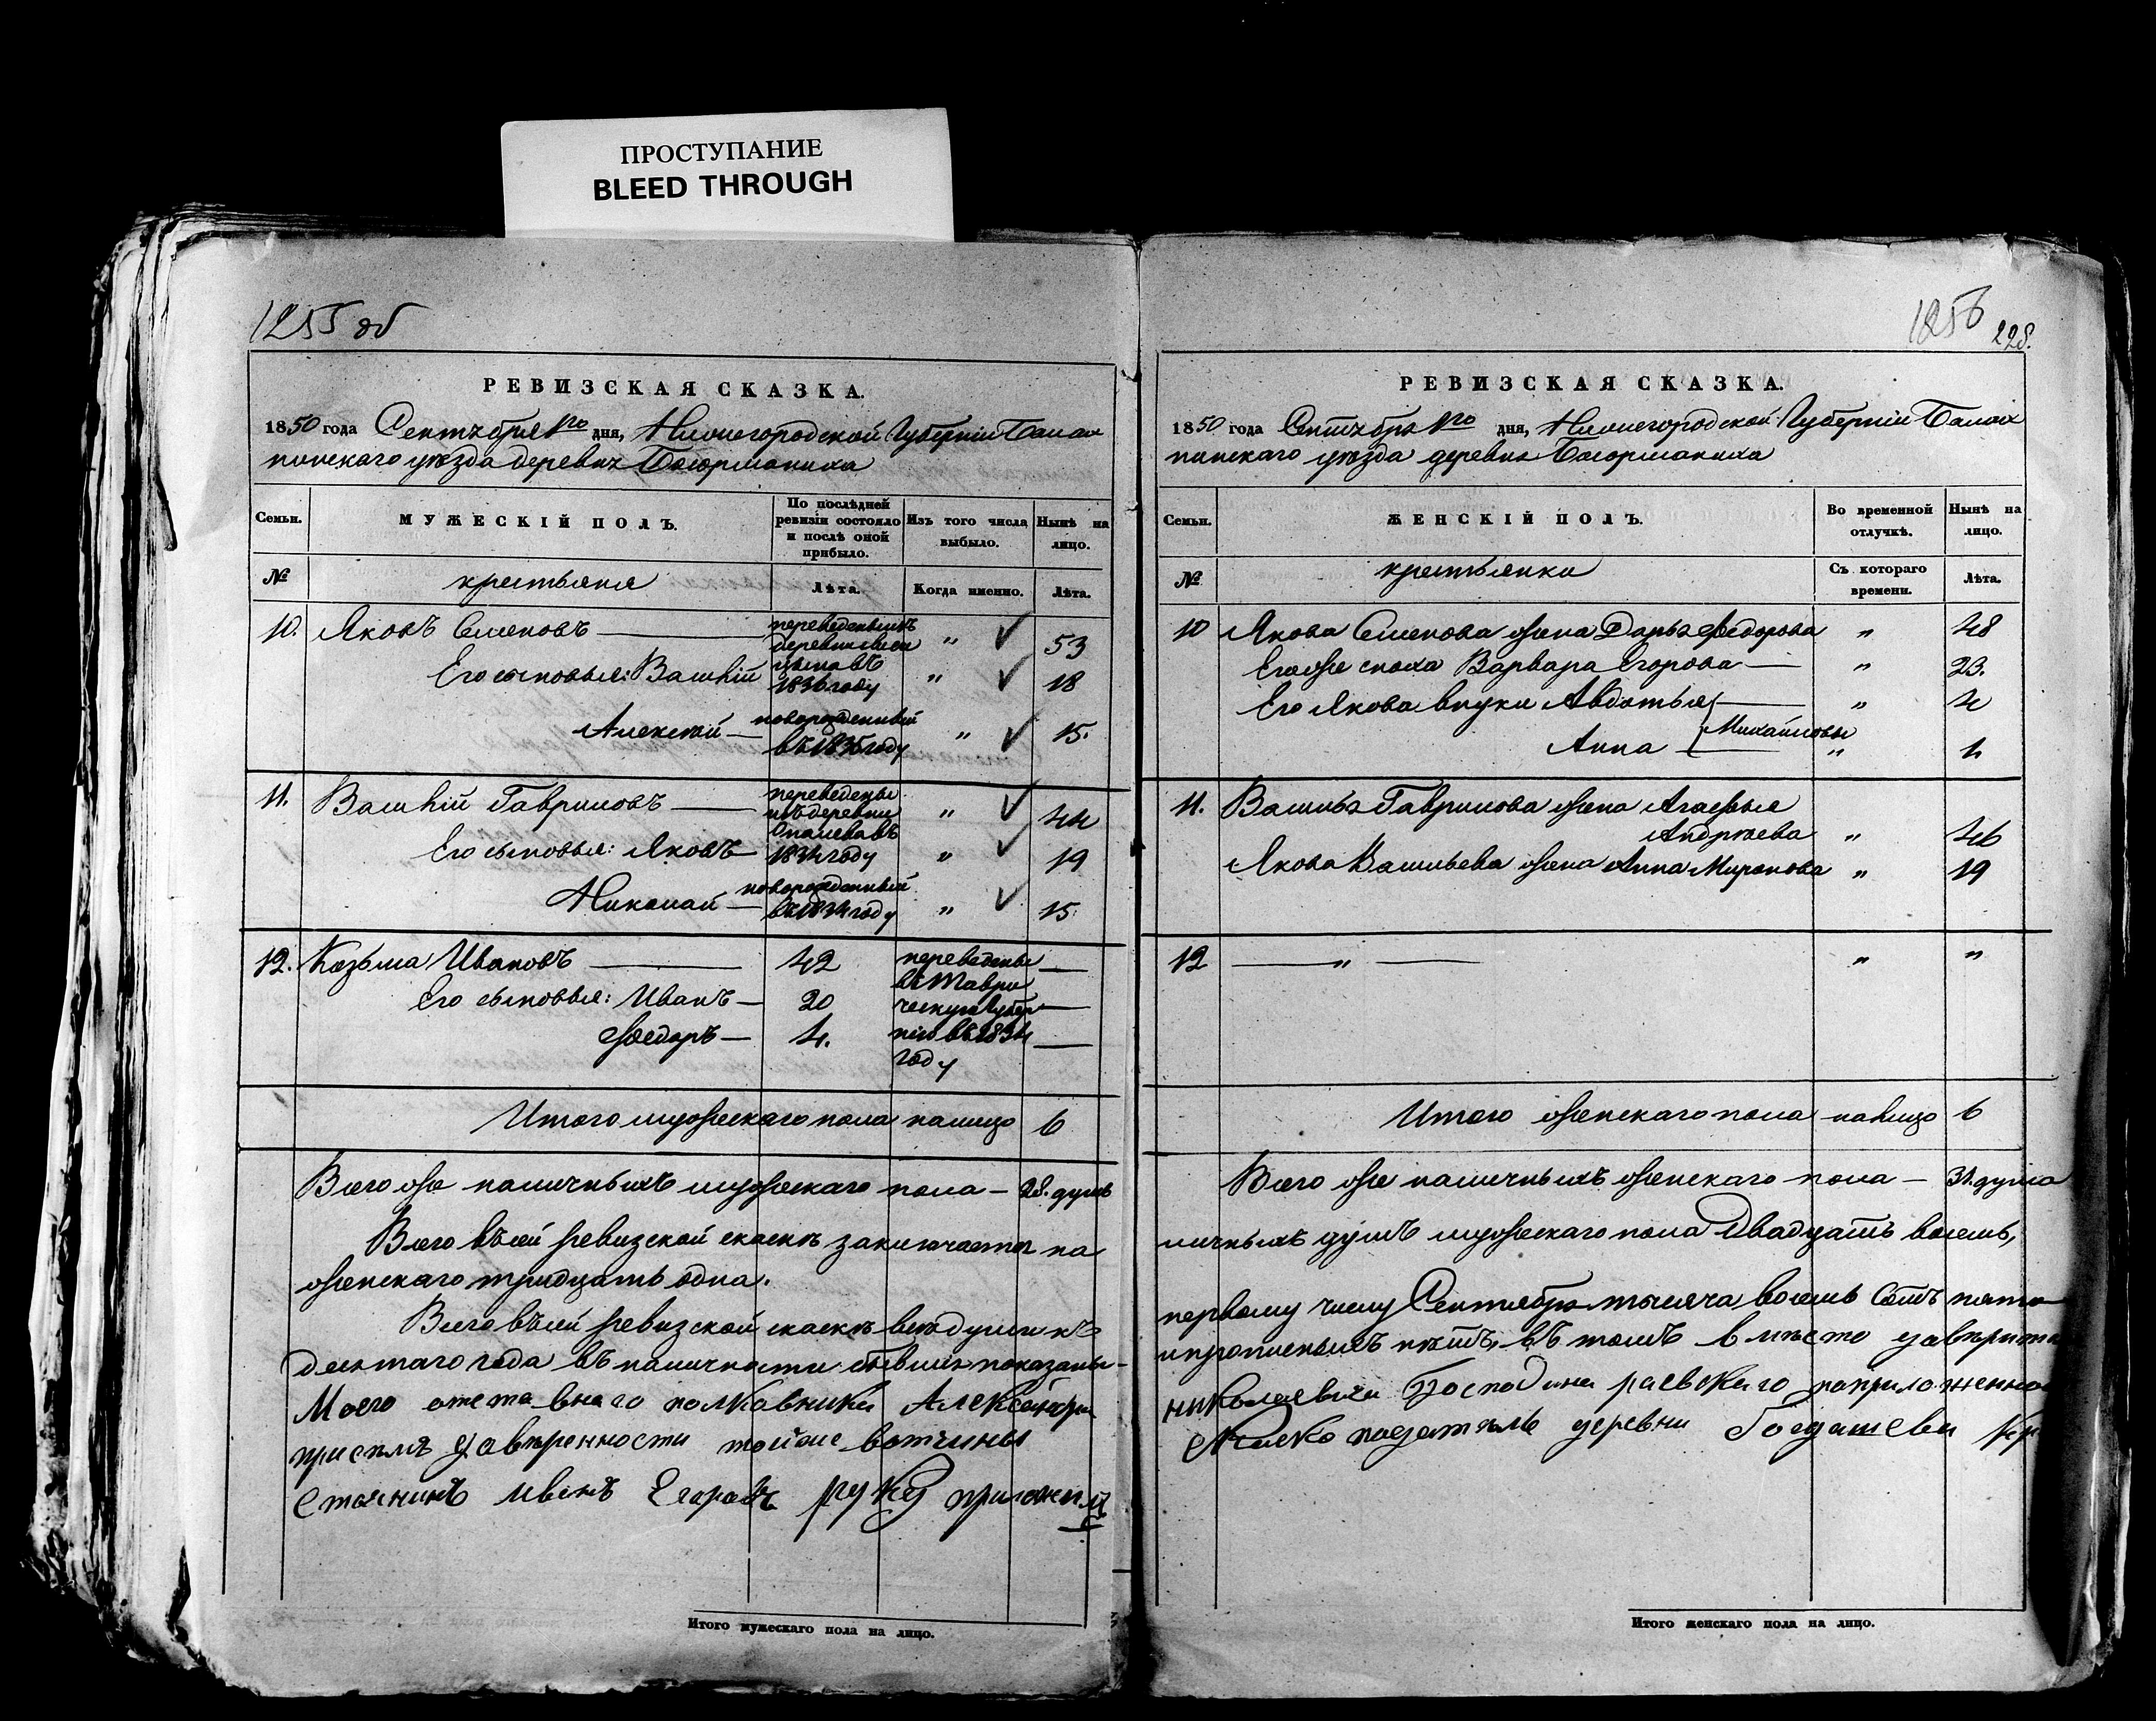 ПРОСТУПАНИЕ
BLEED THROUGH
1255 об
РЕВИЗСКАЯ СКАЗКА.
1850 года Сентября 1го дня, Нижегородской Губернии Балах
нинскаго уѣзда деревни
Семьи.
МУЖЕСКІЙ ПОЛЪ.
По послѣдней ревизіи состояло и послѣ оной прибыло.
Изъ того числа выбыло.
Нынѣ на лицо.
№
крестьяня
Лѣта.
Когда именно.
Лѣта.
10. Яковъ Семеновъ — переведены изъ деревни " 53
Его сыновья: Василій 1836 году " 18
Алексѣй — новорожденный въ 1835 году " 15.
11. Василій Гавриловъ — переведены изъ деревни " 44
Его сыновья: Яковъ — 1834 году " 19
Николай — новорожденный въ 1834 году " 15
12. Козьма Ивановъ — 42 переведены —
Его сыновья: Иванъ — 20 въ Таври ческую Губер —
Федоръ — 4. нію въ 1834 году —
Итого мужескаго пола налицо 6
Всего же наличныхъ мужескаго пола — 28. душъ
Всего въ сей ревизской сказкѣ заключается на
женскаго тридцать одна.
Всего въ сей ревизской сказкѣ всѣ души къ
десятаго года въ наличности бывшія показаны
Моего отставнаго полковника Александра
при семъ довѣренности тойже вотчины
Иванъ Егоровъ руку приложилъ
Итого мужескаго пола на лицо.
1256
228.
РЕВИЗСКАЯ СКАЗКА.
1850 года Сентября 1го дня, Нижегородской Губерніи Балах
нинскаго уѣзда деревни
Семьи.
ЖЕНСКІЙ ПОЛЪ.
Во временной отлучкѣ.
Нынѣ на лицо.
№
крестьянки
Съ котораго времени.
Лѣта.
10 Якова Семенова жена Дарья Федорова " 48
Егоже сноха Варвара Егорова — " 23.
Его Якова внуки Авдотья — " 4
Михайловы
Анна — " 1.
11. Василья Гаврилова жена Агафья
Андреева " 46
Якова Васильева жена Анна Миронова " 19
12 — " — " "
Итого женскаго пола налицо 6
Всего же наличныхъ женскаго пола — 31. душа
личныхъ душъ мужескаго пола двадцать восемь,
первому числу Сентября тысяча восемь сотъ пяти
и прописныхъ нѣтъ, въ томъ вмѣсто
Николаевича Господина раевскаго по приложенной
деревни
Итого женскаго пола на лицо.